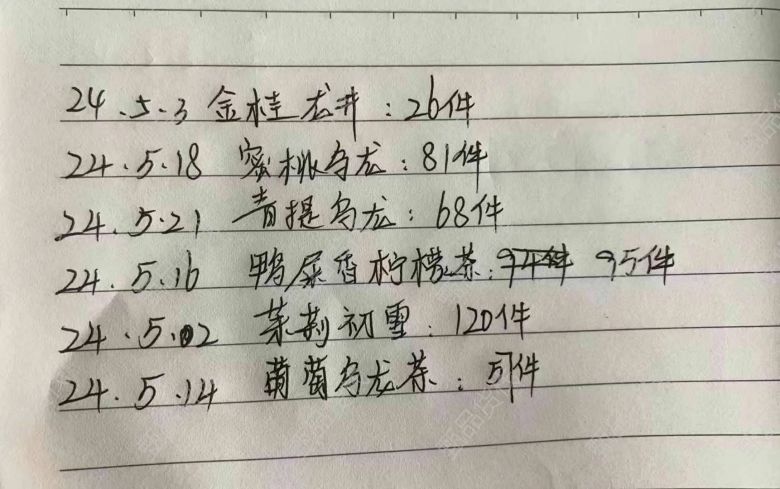 24.5.3 金桂龙井：26件
24.5.18 蜜桃乌龙：81件
24.5.21 青提乌龙：68件
24.5.16 鸭屎香柠檬茶：94件 95件
24.5.02 茉莉初雪：120件
24.5.14 葡萄乌龙茶：51件